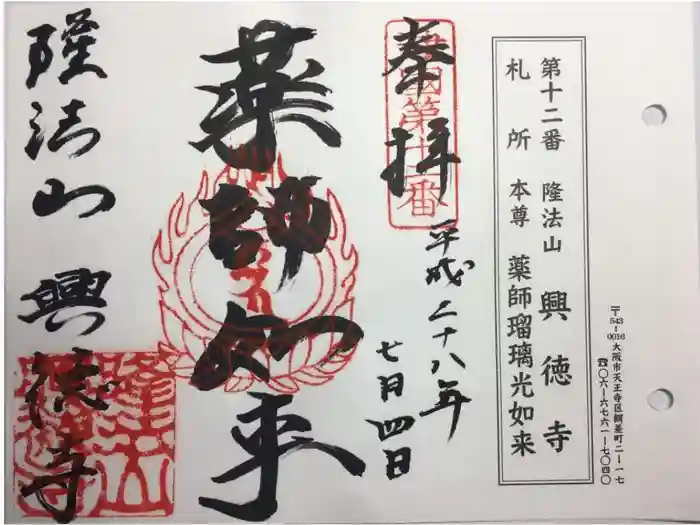 第十二番 隆法山 興徳寺
札所 本尊 薬師瑠璃光如来
〒543-0016 大阪市天王寺区餌差町二ー一七
☎〇六ー六七六一ー七〇四〇
奉拝
国第十二番
平成二十八年
七月四日
薬師如来
隆法山 興徳寺